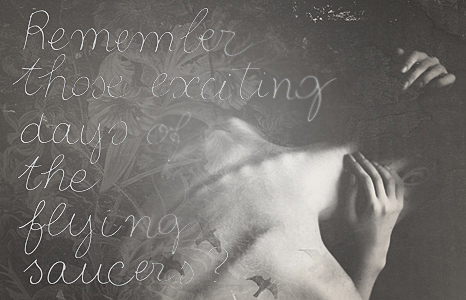 Remember
those exciting
days of
the
flying
saucers?